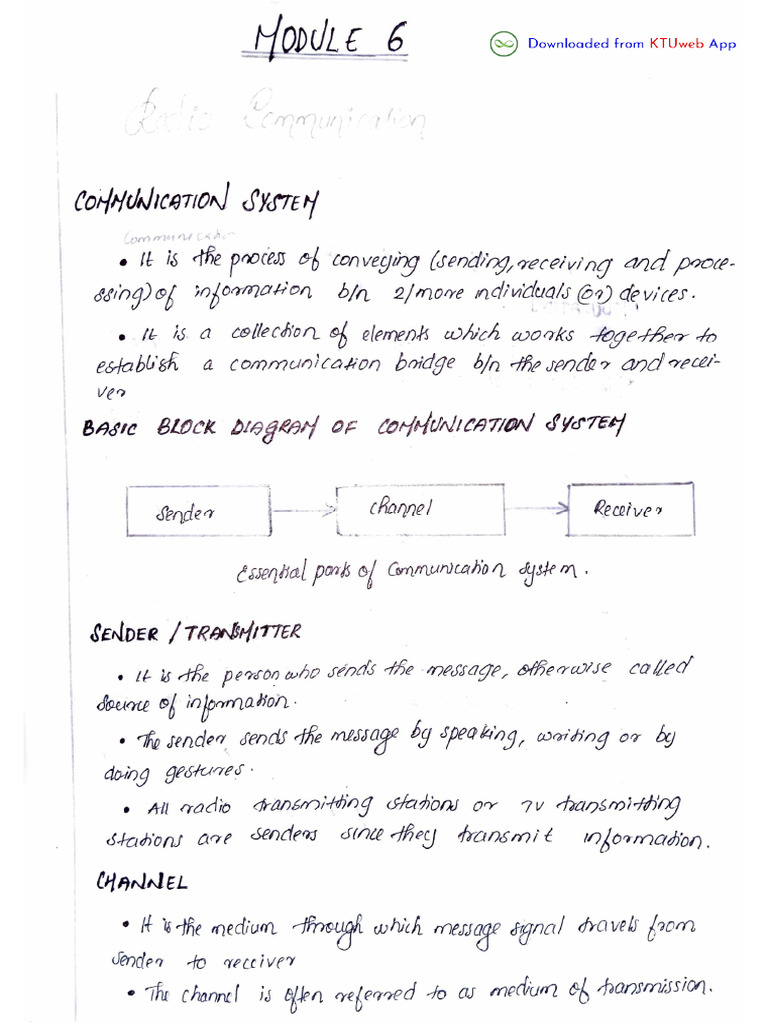 MODULE 6
Downloaded from KTUweb App
Radio Communication
COMMUNICATION SYSTEM
Communication
• It is the process of conveying (sending, receiving and proce-
ssing) of information b/n 2/more individuals (or) devices.
• It is a collection of elements which works together to
establish a communication bridge b/n the sender and recei-
ver
BASIC BLOCK DIAGRAM OF COMMUNICATION SYSTEM
Sender
Channel
Receiver
Essential parts of Communication system.
SENDER / TRANSMITTER
• It is the person who sends the message, otherwise called
source of information.
• The sender sends the message by speaking, writing or by
doing gestures.
• All radio transmitting stations or TV transmitting
stations are senders since they transmit information.
CHANNEL
• It is the medium through which message signal travels from
sender to receiver
• The channel is often referred to as medium of transmission.